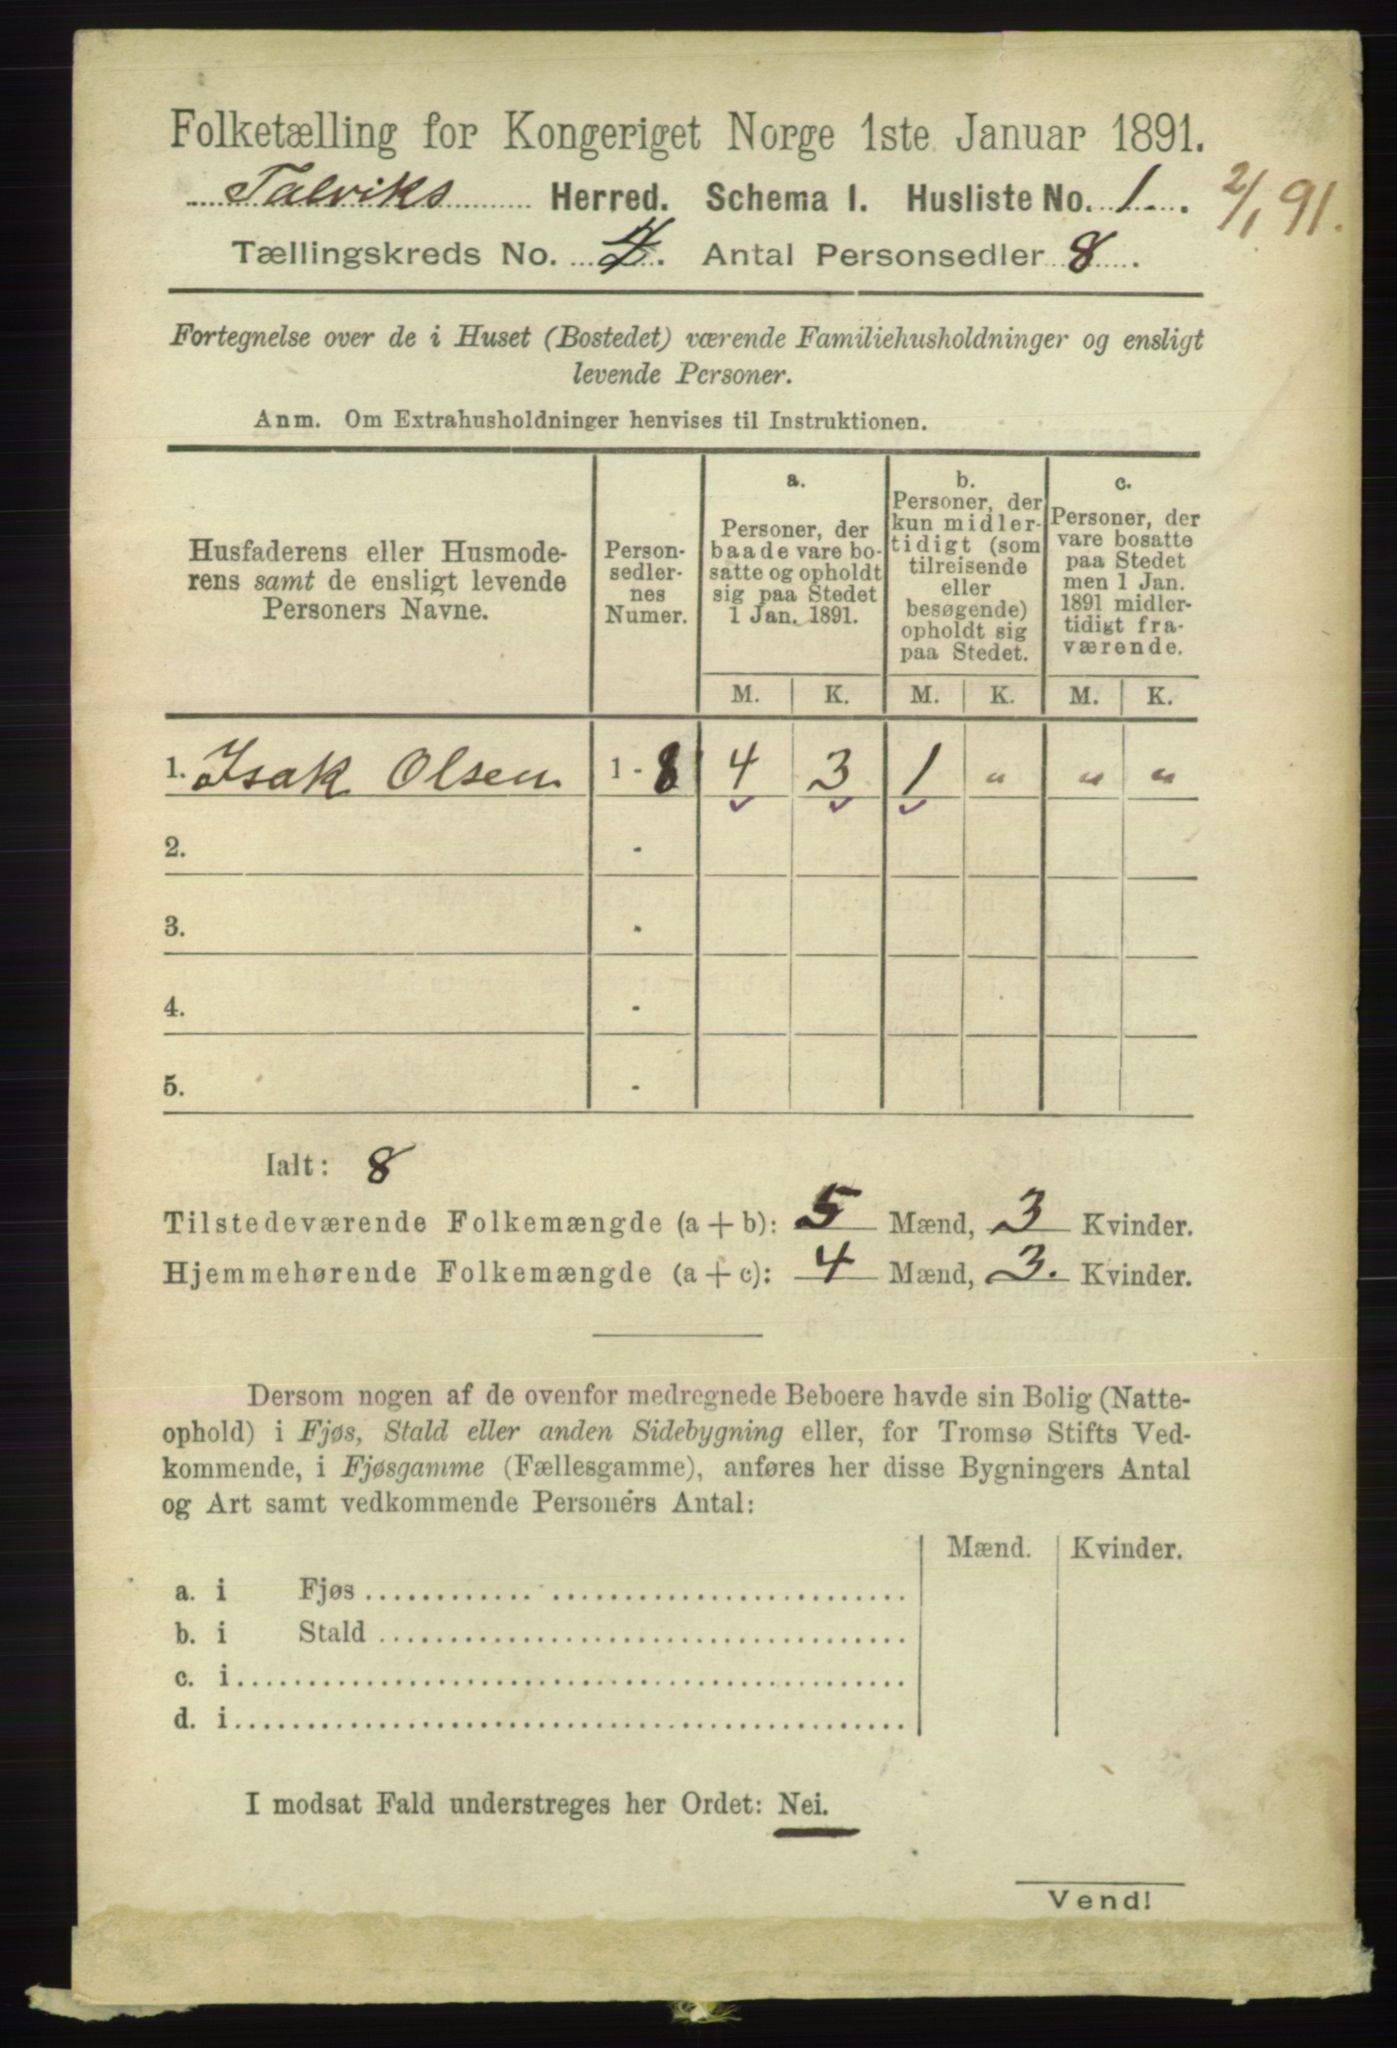 Folketælling for Kongeriget Norge 1ste Januar 1891.
Talviks Herred. Schema I. Husliste No. 1.
2/1 91.
Tællingskreds No. 4. Antal Personsedler 8.
Fortegnelse over de i Huset (Bostedet) værende Familiehusholdninger og ensligt
levende Personer.
Anm. Om Extrahusholdninger henvises til Instruktionen.
Husfaderens eller Husmode-
rens samt de ensligt levende
Personers Navne.
Person-
sedler-
nes
Numer.
a.
Personer, der
baade vare bo-
satte og opholdt
sig paa Stedet
1 Jan. 1891.
b.
Personer, der
kun midler-
tidigt (som
tilreisende
eller
besøgende)
opholdt sig
paa Stedet.
c.
Personer, der
vare bosatte
paa Stedet
men 1 Jan.
1891 midler-
tidigt fra-
værende.
M. K. M. K. M. K.
1. Isak Olsen 1 - 8 4 3 1 " " "
2. -
3. -
4. -
5. -
Ialt: 8
Tilstedeværende Folkemængde (a + b): 5 Mænd, 3 Kvinder.
Hjemmehørende Folkemængde (a + c): 4 Mænd, 3. Kvinder.
Dersom nogen af de ovenfor medregnede Beboere havde sin Bolig (Natte-
ophold) i Fjøs, Stald eller anden Sidebygning eller, for Tromsø Stifts Ved-
kommende, i Fjøsgamme (Fællesgamme), anføres her disse Bygningers Antal
og Art samt vedkommende Personers Antal:
Mænd. Kvinder.
a. i Fjøs
b. i Stald
c. i
d. i
I modsat Fald understreges her Ordet: Nei.
Vend!